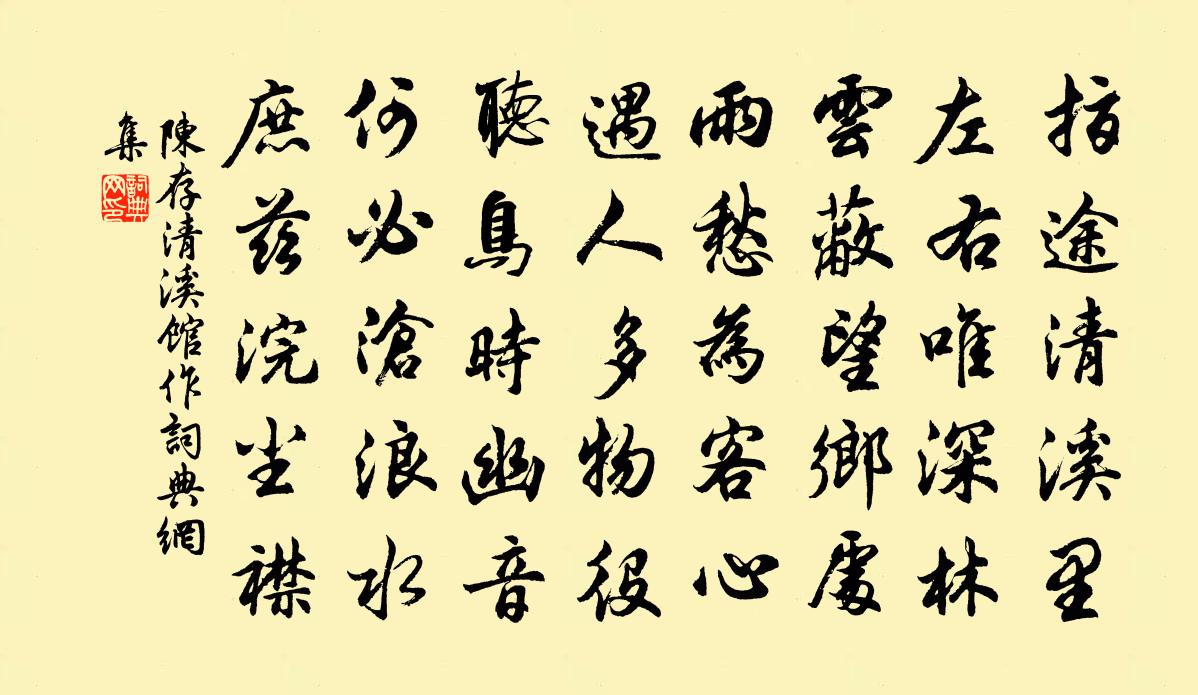 指途清溪里
左右唯深林
雲蔽望鄉處
雨愁為客心
遇人多物役
聽鳥時幽音
何必滄浪水
庶茲浣尘襟
陳存清溪館作詞典網
集
詞典
网印